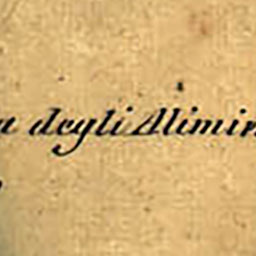 degli Alimin